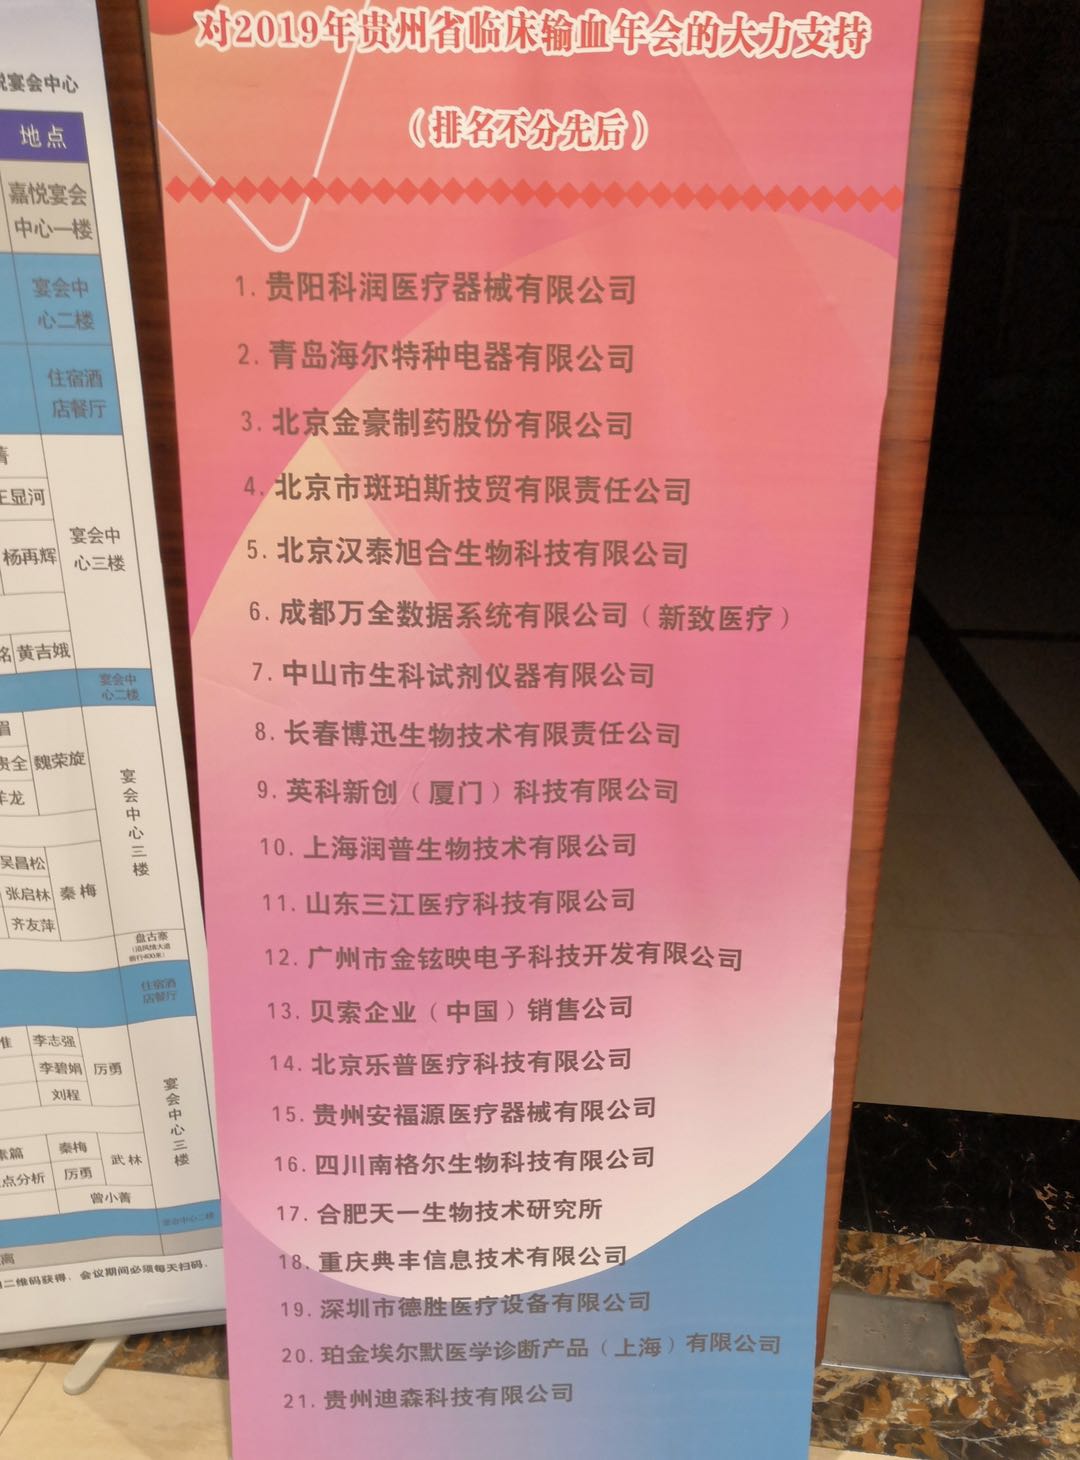 对2019年贵州省临床输血年会的大力支持
（排名不分先后）
1. 贵阳科润医疗器械有限公司
2. 青岛海尔特种电器有限公司
3. 北京金豪制药股份有限公司
4. 北京市斑珀斯技贸有限责任公司
5. 北京汉泰旭合生物科技有限公司
6. 成都万全数据系统有限公司（新致医疗）
7. 中山市生科试剂仪器有限公司
8. 长春博迅生物技术有限责任公司
9. 英科新创（厦门）科技有限公司
10. 上海润普生物技术有限公司
11. 山东三江医疗科技有限公司
12. 广州市金铉映电子科技开发有限公司
13. 贝索企业（中国）销售公司
14. 北京乐普医疗科技有限公司
15. 贵州安福源医疗器械有限公司
16. 四川南格尔生物科技有限公司
17. 合肥天一生物技术研究所
18. 重庆典丰信息技术有限公司
19. 深圳市德胜医疗设备有限公司
20. 珀金埃尔默医学诊断产品（上海）有限公司
21. 贵州迪森科技有限公司
悦宴会中心
地点
嘉悦宴会
中心一楼
宴会中
心二楼
住宿酒
店餐厅
王显河
杨再辉
宴会中
心三楼
铭 黄吉娥
宴会中
心二楼
贵全 魏荣旋
羊龙
宴会中心三楼
吴昌松
张启林 秦梅
齐友萍
盘古寨
（沿风情大道
前行400米）
住宿酒
店餐厅
李志强
李碧娟 厉勇
刘程
宴会中心三楼
秦梅
点分析 厉勇 武林
曾小菁
宴会中心二楼
离
二维码获得，会议期间必须每天扫码.